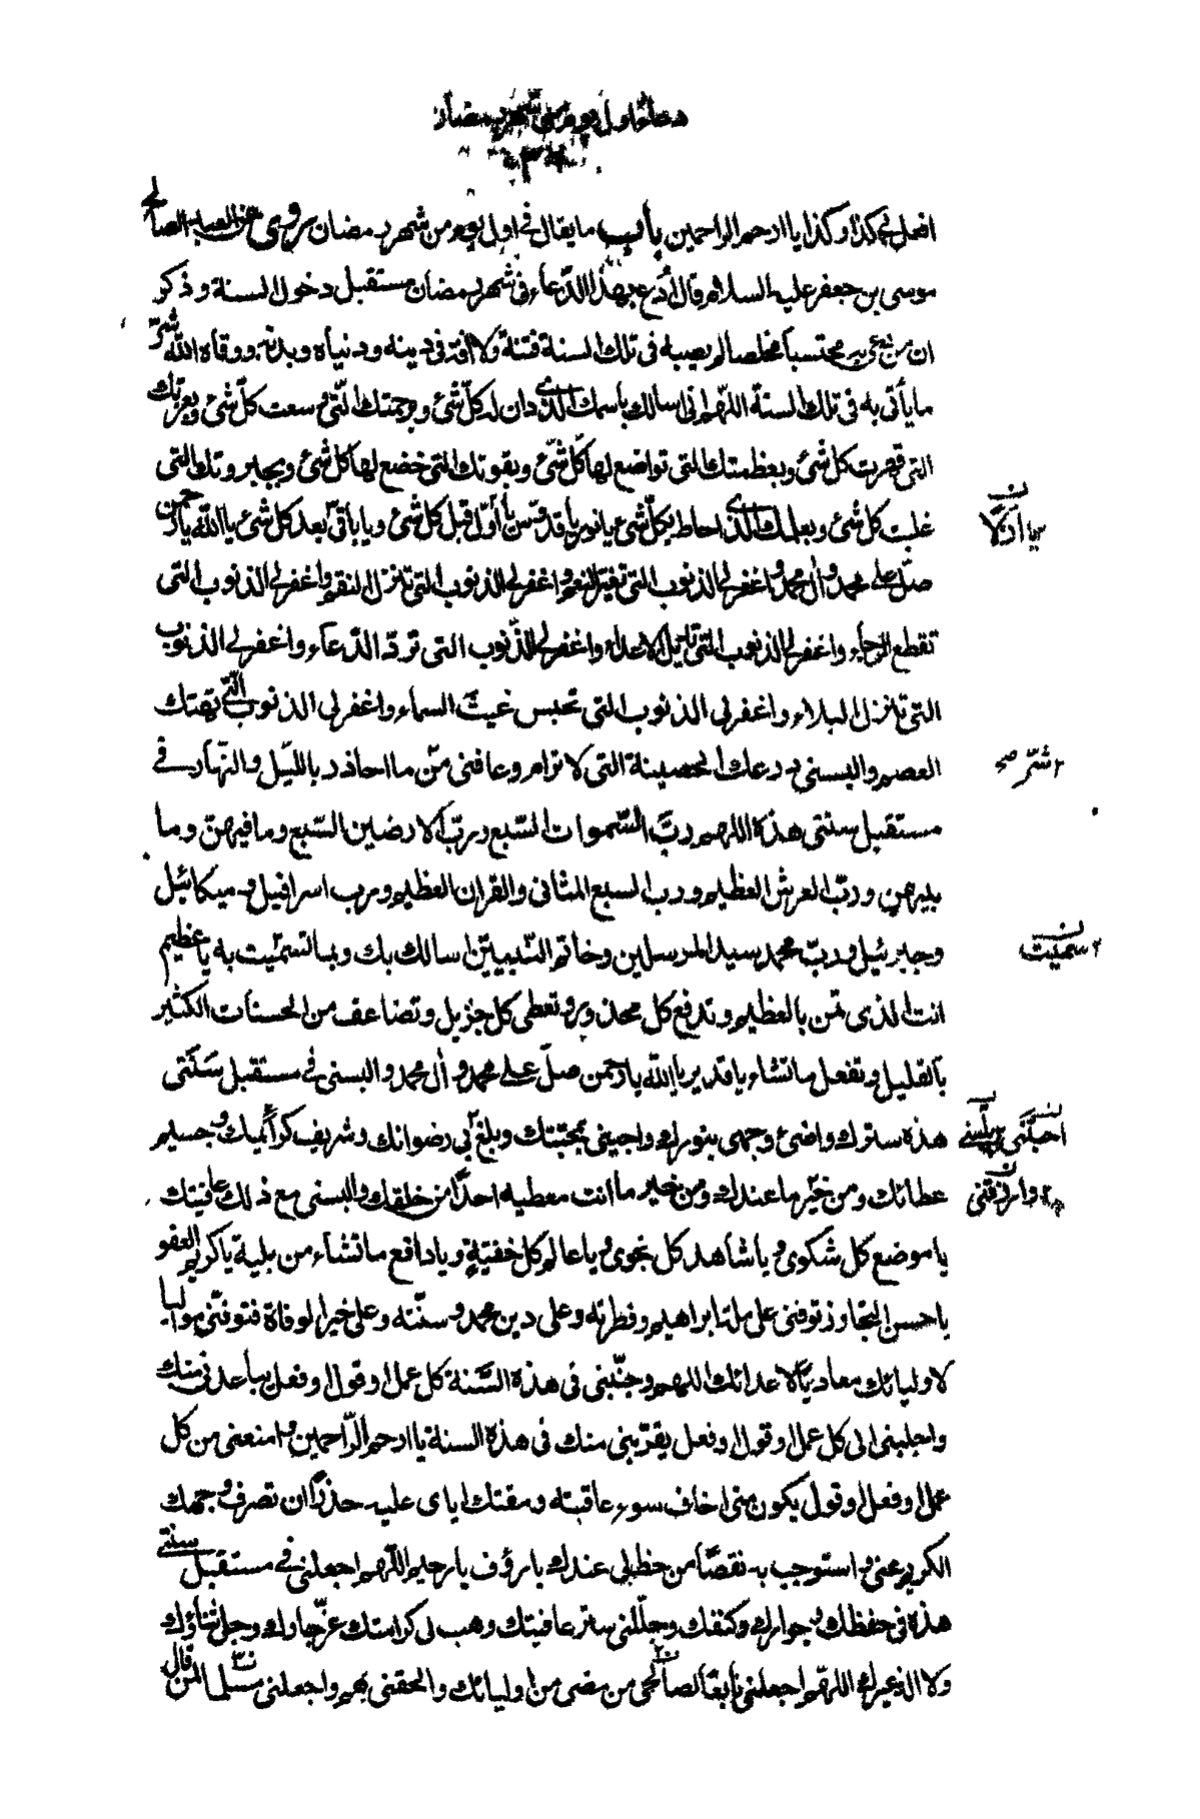 دعاء اول يوم من شهر رمضان
افعل بي كذا وكذا يا ارحم الراحمين باب ما يقال في اول يوم من شهر رمضان روى عن العبد الصالح
موسى بن جعفر عليه السلام قال ادع بهذا الدعاء في شهر رمضان مستقبل دخول السنة وذكر
ان من دعى به محتسبا مخلصا لم يصبه في تلك السنة فتنة ولا افة في دينه ودنياه وبدنه ووقاه الله شرّ
ما يأتي به في تلك السنة اللهم اني اسالك باسمك الذي دان له كل شئ وبرحمتك التي وسعت كل شئ وبعزتك
التي قهرت كل شئ وبعظمتك التي تواضع لها كل شئ وبقوتك التي خضع لها كل شئ وبجبروتك التي
غلبت كل شئ وبعلمك الذي احاط بكل شئ يا نور يا قدوس يا أول قبل كل شئ ويا باقي بعد كل شئ يا الله يا رحمن
صلّ على محمد وال محمد واغفر لي الذنوب التي تغيّر النعم واغفر لي الذنوب التي تنزل النقم واغفر لي الذنوب التي
تقطع الرجاء واغفر لي الذنوب التي تديل الاعداء واغفر لي الذنوب التي تردّ الدّعاء واغفر لي الذنوب
التي تنزل البلاء واغفر لي الذنوب التي تحبس غيث السماء واغفر لي الذنوب التي تهتك
العصم والبسني درعك الحصينة التي لا ترام وعافني من ما احاذر بالليل والنهار في
مستقبل سنتي هذه اللهم ربّ السّموات السّبع وربّ الارضين السّبع وما فيهنّ وما
بينهن وربّ العرش العظيم ورب السبع المثاني والقران العظيم ورب اسرافيل وميكائيل
وجبرئيل وربّ محمد سيد المرسلين وخاتم النّبيين اسالك بك وبما تسمّيت به يا عظيم
انت الذي تمن بالعظيم وتدفع كل محذور وتعطي كل جزيل وتضاعف من الحسنات الكثير
بالقليل وتفعل ما تشاء يا قدير يا الله يا رحمن صلّ على محمد وال محمد والبسني في مستقبل سنتي
هذه سترك واضئ وجهي بنورك واحيني بمحبتك وبلغ بي رضوانك وشريف كرائمك وجسيم
عطائك ومن خير ما عندك ومن خير ما انت معطيه احدًا من خلقك والبسني مع ذلك عافيتك
يا موضع كل شكوى ويا شاهد كل نجوى ويا عالم كل خفيّة ويا دافع ما تشاء من بلية يا كريم العفو
يا حسن التجاوز توفني على ملة ابراهيم وفطرته وعلى دين محمد وسنّته وعلى خير الوفاة فتوفّني مواليا
لاوليائك معاديًا لاعدائك اللهم وجنّبني في هذه السّنة كل عمل او قول او فعل يباعدني منك
واجلبني الى كل عمل او قول او فعل يقرّبني منك في هذه السنة يا ارحم الرّاحمين وامنعني من كل
عمل او فعل او قول يكون مني اخاف سوء عاقبته ومقتك اياي عليه حذرًا ان تصرف وجهك
الكريم عني واستوجب به نقصًا من حظ لي عندك يا رؤف يا رحيم اللهم اجعلني في مستقبل سنتي
هذه في حفظك وجوارك وكنفك وجلّلني ستر عافيتك وهب لي كرامتك عزّ جارك وجل ثناؤك
ولا اله غيرك اللهم اجعلني تابعًا لصالحي من مضى من اوليائك والحقني بهم واجعلني مسلما لمن قال
يا اوّلا
شرّ صح
سميت
احيني
وارزقني